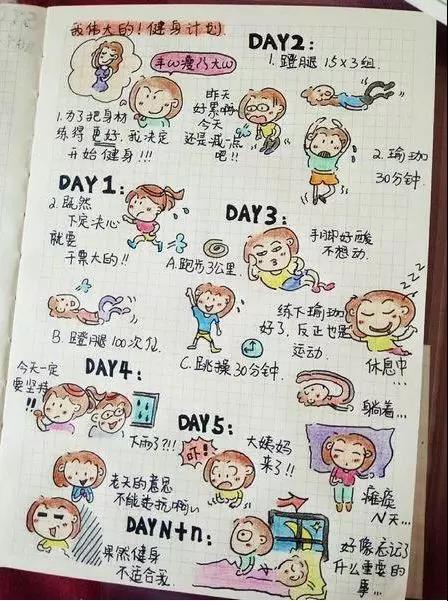 我伟大的!健身计划
1.为了把身材
练得更好.我决定
开始健身!!!
DAY1:
2.既然
下定决心
就要
干票大的!!
A.跑步3公里.
B.蹬腿100次/位
C.跳操30分钟.
DAY2:
1.蹬腿 15×3组.
昨天
好累啊
今天
还是减点
吧!!
2.瑜珈
30分钟.
DAY3:
手脚好酸
不想动.
练下瑜珈
好了.反正也是
运动.
zzz
休息中...
躺着...
DAY4:
今天一定
要坚持
!!
下雨了?!!
老天的意思
不能违抗啊
果然健身
不适合我.
DAY5:
吓!!
大姨妈
来了!!
瘫痪
N天...
DAYN+n:
好像忘记了
什么重要的
事...